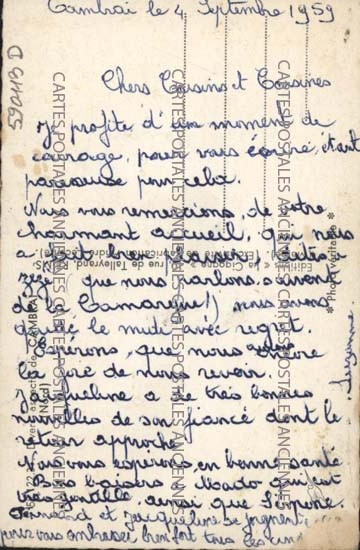 Cambrai le 4 Septembre 1959
Chers Cousins et Cousines
Je profite d'un moment de
courage, pour vous écrire, étant
paresseuse pour cela.
Nous vous remercions, de votre
charmant accueil, qui nous
a fait bien plaisir,
que nous parlons souvent
de la Camargue!) nous avons
quitté le midi avec regret.
Espérons, que nous aurons encore
la joie de nous revoir.
Jacqueline a de très bonnes
nouvelles de son fiancé dont le
retour approche.
Nous vous espérons en bonne santé
Bons baisers à Mado qui est
très gentille, ainsi que Simone.
Fernand et Jacqueline se joignent
pour vous embrasser bien fort tous les cinq
Suzanne
CARTES POSTALES ANCIENNES
* Photo Véritable *
CAMBRAI
(Nord)